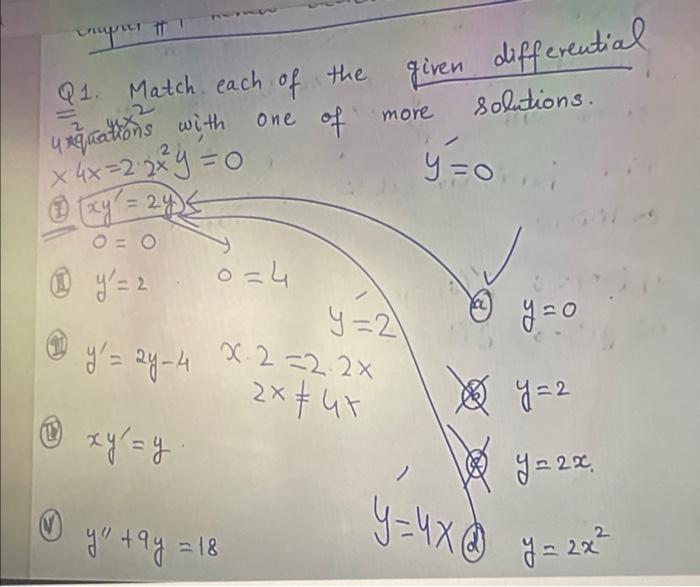 Chapter # 1
Q1. Match each of the given differential
equations with one of more solutions.
4x² 4x²
x 4x = 2·2x² y' = 0
y' = 0
I xy' = 2y
0 = 0
II y' = 2
0 = 4
y' = 2
a y = 0
III y' = 2y - 4
x·2 = 2·2x
2x ≠ 4x
y = 2
IV xy' = y
y = 2x.
V y'' + 9y = 18
y' = 4x
d y = 2x²